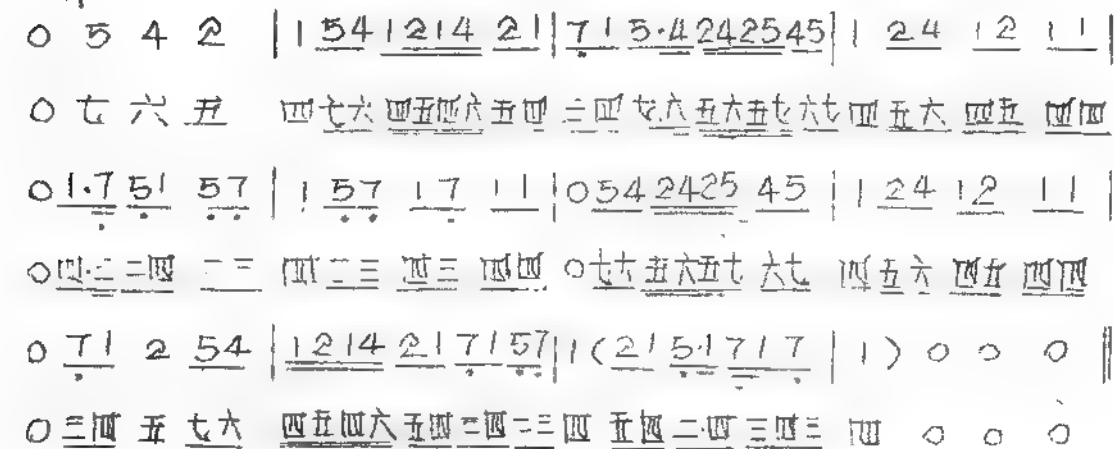 0 5 4 2 | 1 54 1214 21 | 71 5·4 2425 45 | 1 24 12 11 |
0 七 六 五 四 七六 四五四六 五四 三四 七.六 五六五七 六七 四 五六 四五 四四
0 1·7 51 57 | 1 57 17 11 | 0 54 2425 45 | 1 24 12 11 |
0 四·三 二四 二三 四 二三 四三 四四 0 七六 五六五七 六七 四 五六 四五 四四
0 71 2 54 | 1214 21 71 57 | 1 ( 21 5·1 717 | 1 ) 0 0 0 ‖
0 三四 五 七六 四五四六 五四 三四 二三 四 五四 二·四 三四三 四 0 0 0